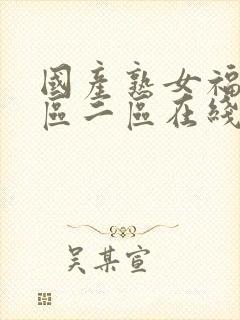 國産熟女福
區二區在綫
吴某宣